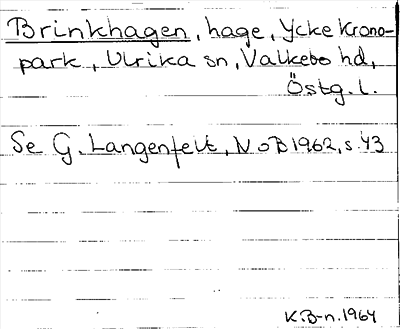 Brinkhagen, hage, Ycke Krono-
park, Ulrika sn, Valkebo hd,
Östg. l.
Se G. Langenfelt, NoB 1962, s. 43
KB-n. 1964